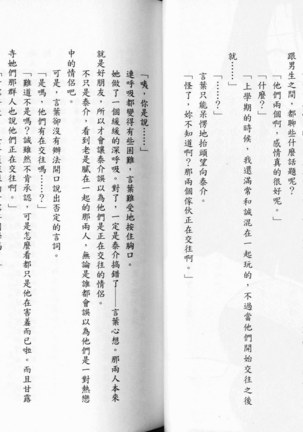 跟男生之間，都聊些什麼話題呢？
「他們兩個啊，感情真的很好呢。」
「什麼？」
「上學期的時候，我還滿常和誠混在一起玩的，不過當他們開始交往之後
就……」
「……？」
言葉只能呆愣地抬頭望向泰介。
「怪了，妳不知道啊？那兩個傢伙正在交往啊。」
「咦，你是說……」
連呼吸都變得有些困難，言葉難受地按住胸口。
她做了一個緩緩的深呼吸。對了，一定是泰介搞錯了——言葉心想。那兩人本來
就是好朋友，所以才會讓泰介誤以為他們是正在交往的情侶。
不只是泰介，看到老是膩在一起的那兩人，無論是誰都會誤以為他們是一對熱戀
中的情侶吧。
可是，言葉卻沒有辦法開口說出否定的言詞。
「是嗎，他們有在交往嗎……？」
「難道不是嗎？誠雖然不肯承認，可是怎麼看都只是他在害羞而已啦。而且甘露
寺她們那群人也說他們正在交往啊。」